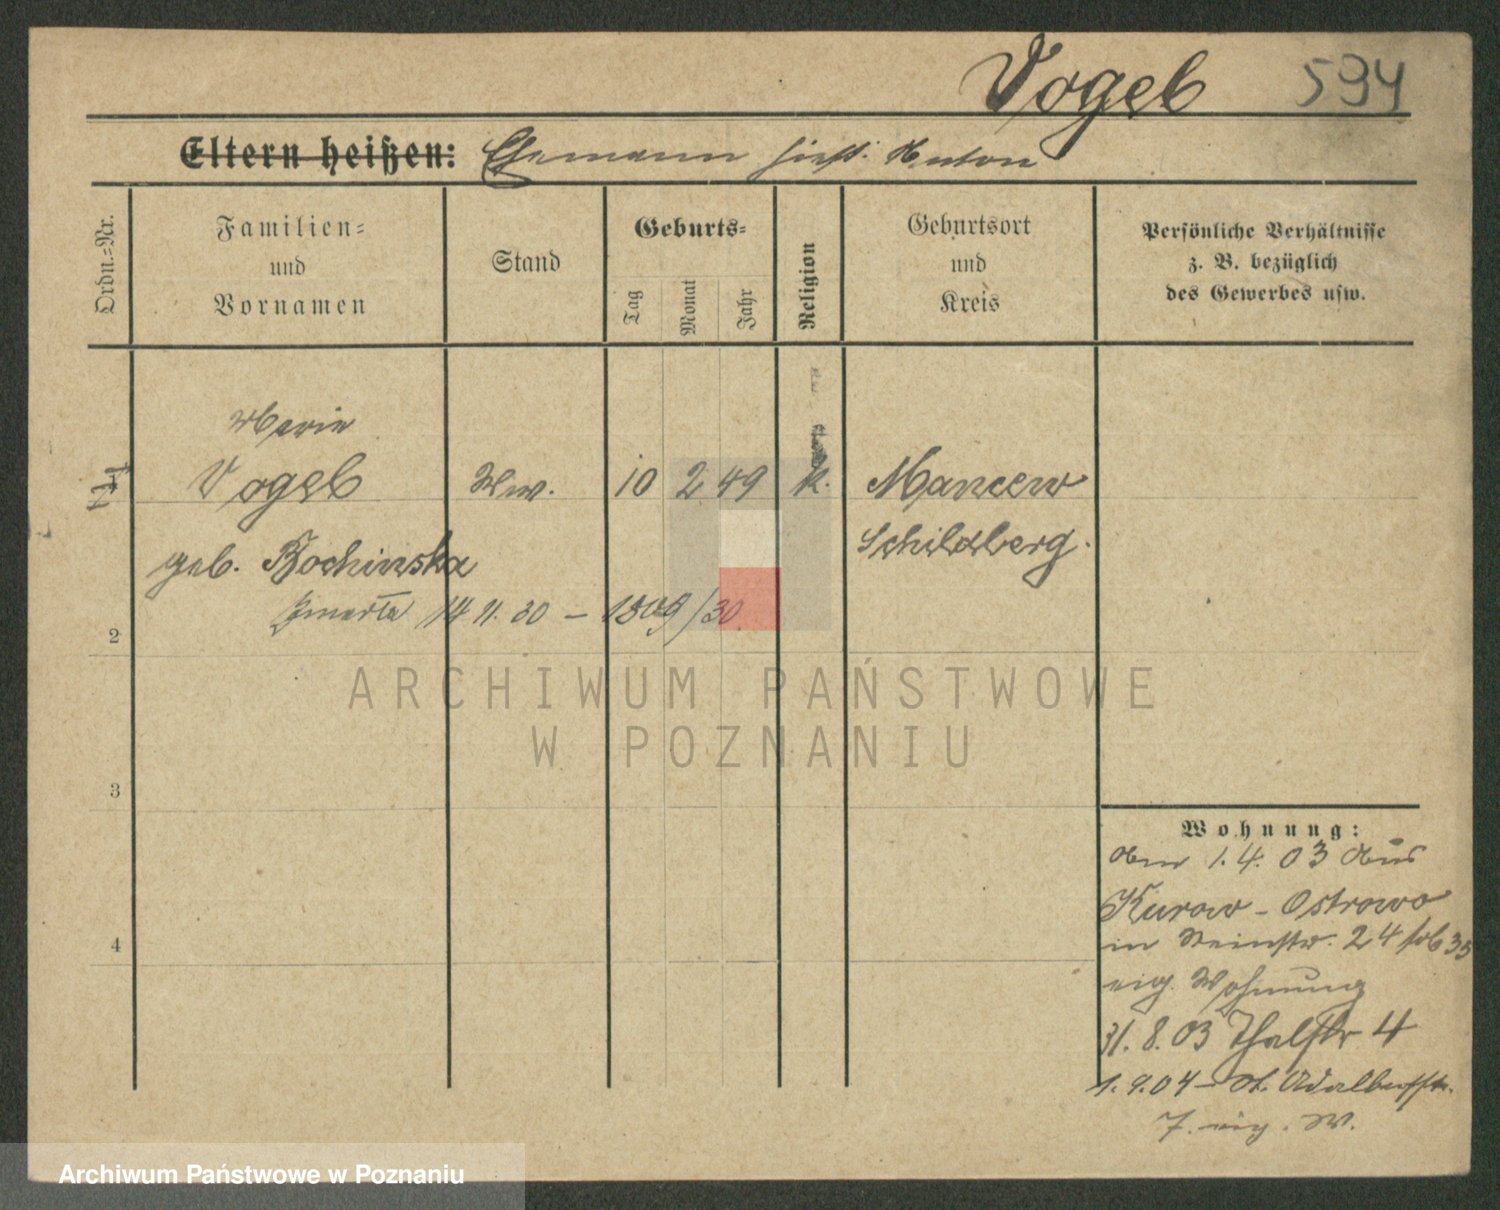 Vogel 594
Eltern heißen: Ehemann hieß: Anton
Ordn.=Nr.
Familien=
und
Vornamen
Stand
Geburts=
Tag
Monat
Jahr
Religion
Geburtsort
und
Kreis
Persönliche Verhältnisse
z. B. bezüglich
des Gewerbes usw.
Marie
Vogel Ww. 10 2 49 k. Mancew
geb. Bochinska Schildberg.
Zmarła 14 11. 30 – 1809/30
2
ARCHIWUM PAŃSTWOWE
W POZNANIU
3
4
Wohnung:
1. 4. 03 aus
Kurow - Ostrowo
in Steinstr. 24
eig. Wohnung
31. 8. 03 Thalstr 4
1. 9. 04 – St. Adalbertstr.
7. eig. W.
Archiwum Państwowe w Poznaniu